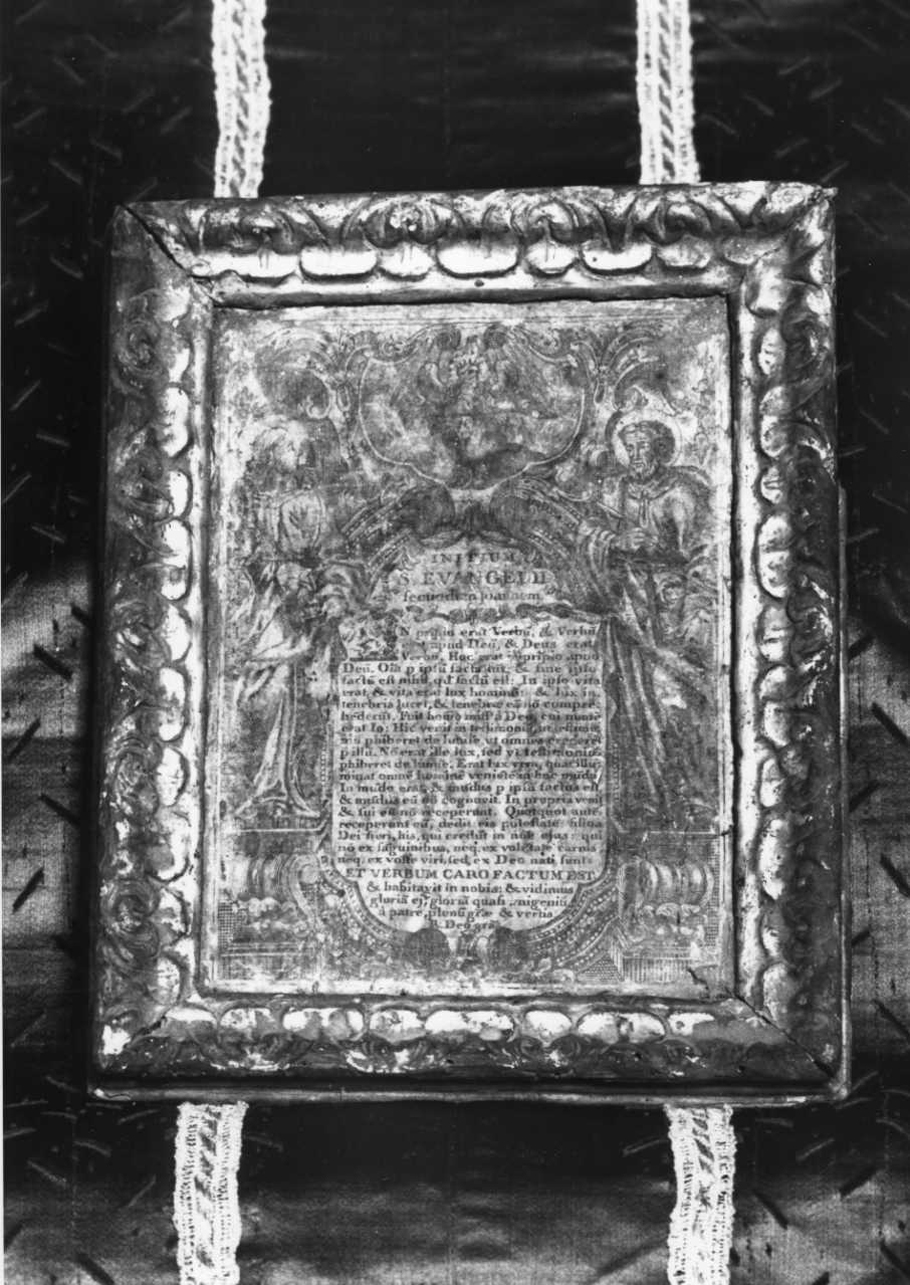 INITIUM
S. EVANGELII
secundum Joannem
IN prĩp̃io erat Verbũ, & Verbũ
erat apud Deũ, & Deus erat
Verbũ. Hoc erat in prĩp̃io apud
Deũ. Oĩa p ipsũ facta sũt, & sine ipso
factũ est nihil, qd factũ est: In ipso vita
erat, & vita erat lux hominũ: & lux in
tenebris lucet, & tenebræ eã nõ compre-
hederũt. Fuit homo miss' à Deo, cui nomẽ
erat Io: Hic venit in testimoniũ, ut testimo-
niũ phiberet de lumine, ut omnes crederẽt
p illũ. Nõ erat ille lux, sed ut testimoniũ
phiberet de lumine. Erat lux vera, quæ illu-
minat omnẽ hominẽ veniẽtẽ in hũc mũdũ,
In mũdo erat, & mũdus p ipsũ factus est,
& mũdus eũ nõ cognovit. In propria venit
& sui eũ nõ receperunt. Quotquot autẽ
receperunt eũ, dedit eis potestatẽ filios
Dei fieri, his, qui credũt in noĩe ejus: qui
nõ ex sãguinibus, neq, ex volũtate carnis
neq, ex volũtate viri, sed, ex Deo nati sunt.
ET VERBUM CARO FACTUM EST
& habitavit in nobis: & vidimus
gloriã ej', gloriã quasi unigeniti
à patre, plenũ græ & veritis
R. Deo grãs